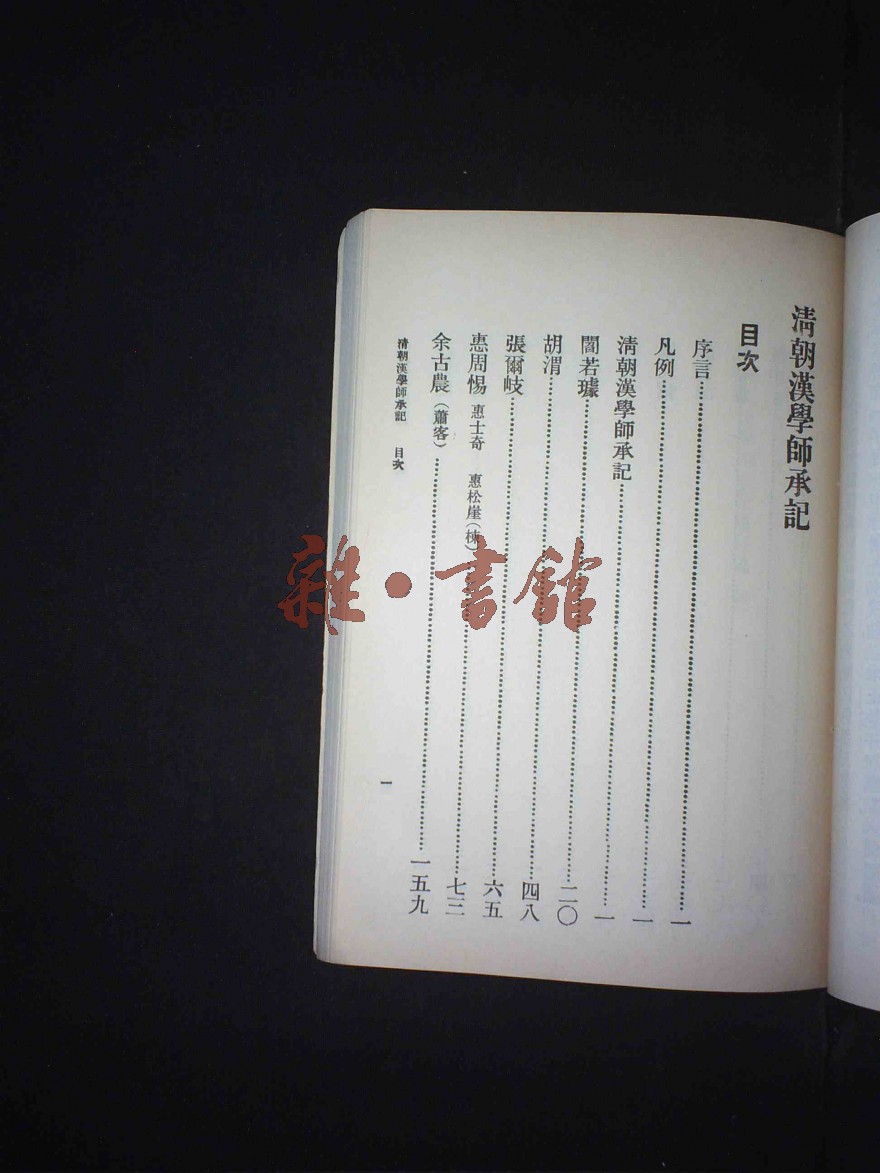 清朝漢學師承記
目次
序言……………………一
凡例……………………一
清朝漢學師承記……………………一
閻若璩……………………二〇
胡渭……………………四八
張爾岐……………………六五
惠周惕 惠士奇 惠松崖(棟)……………………七三
余古農(蕭客)……………………一五九
清朝漢學師承記 目次
一
雜·書館